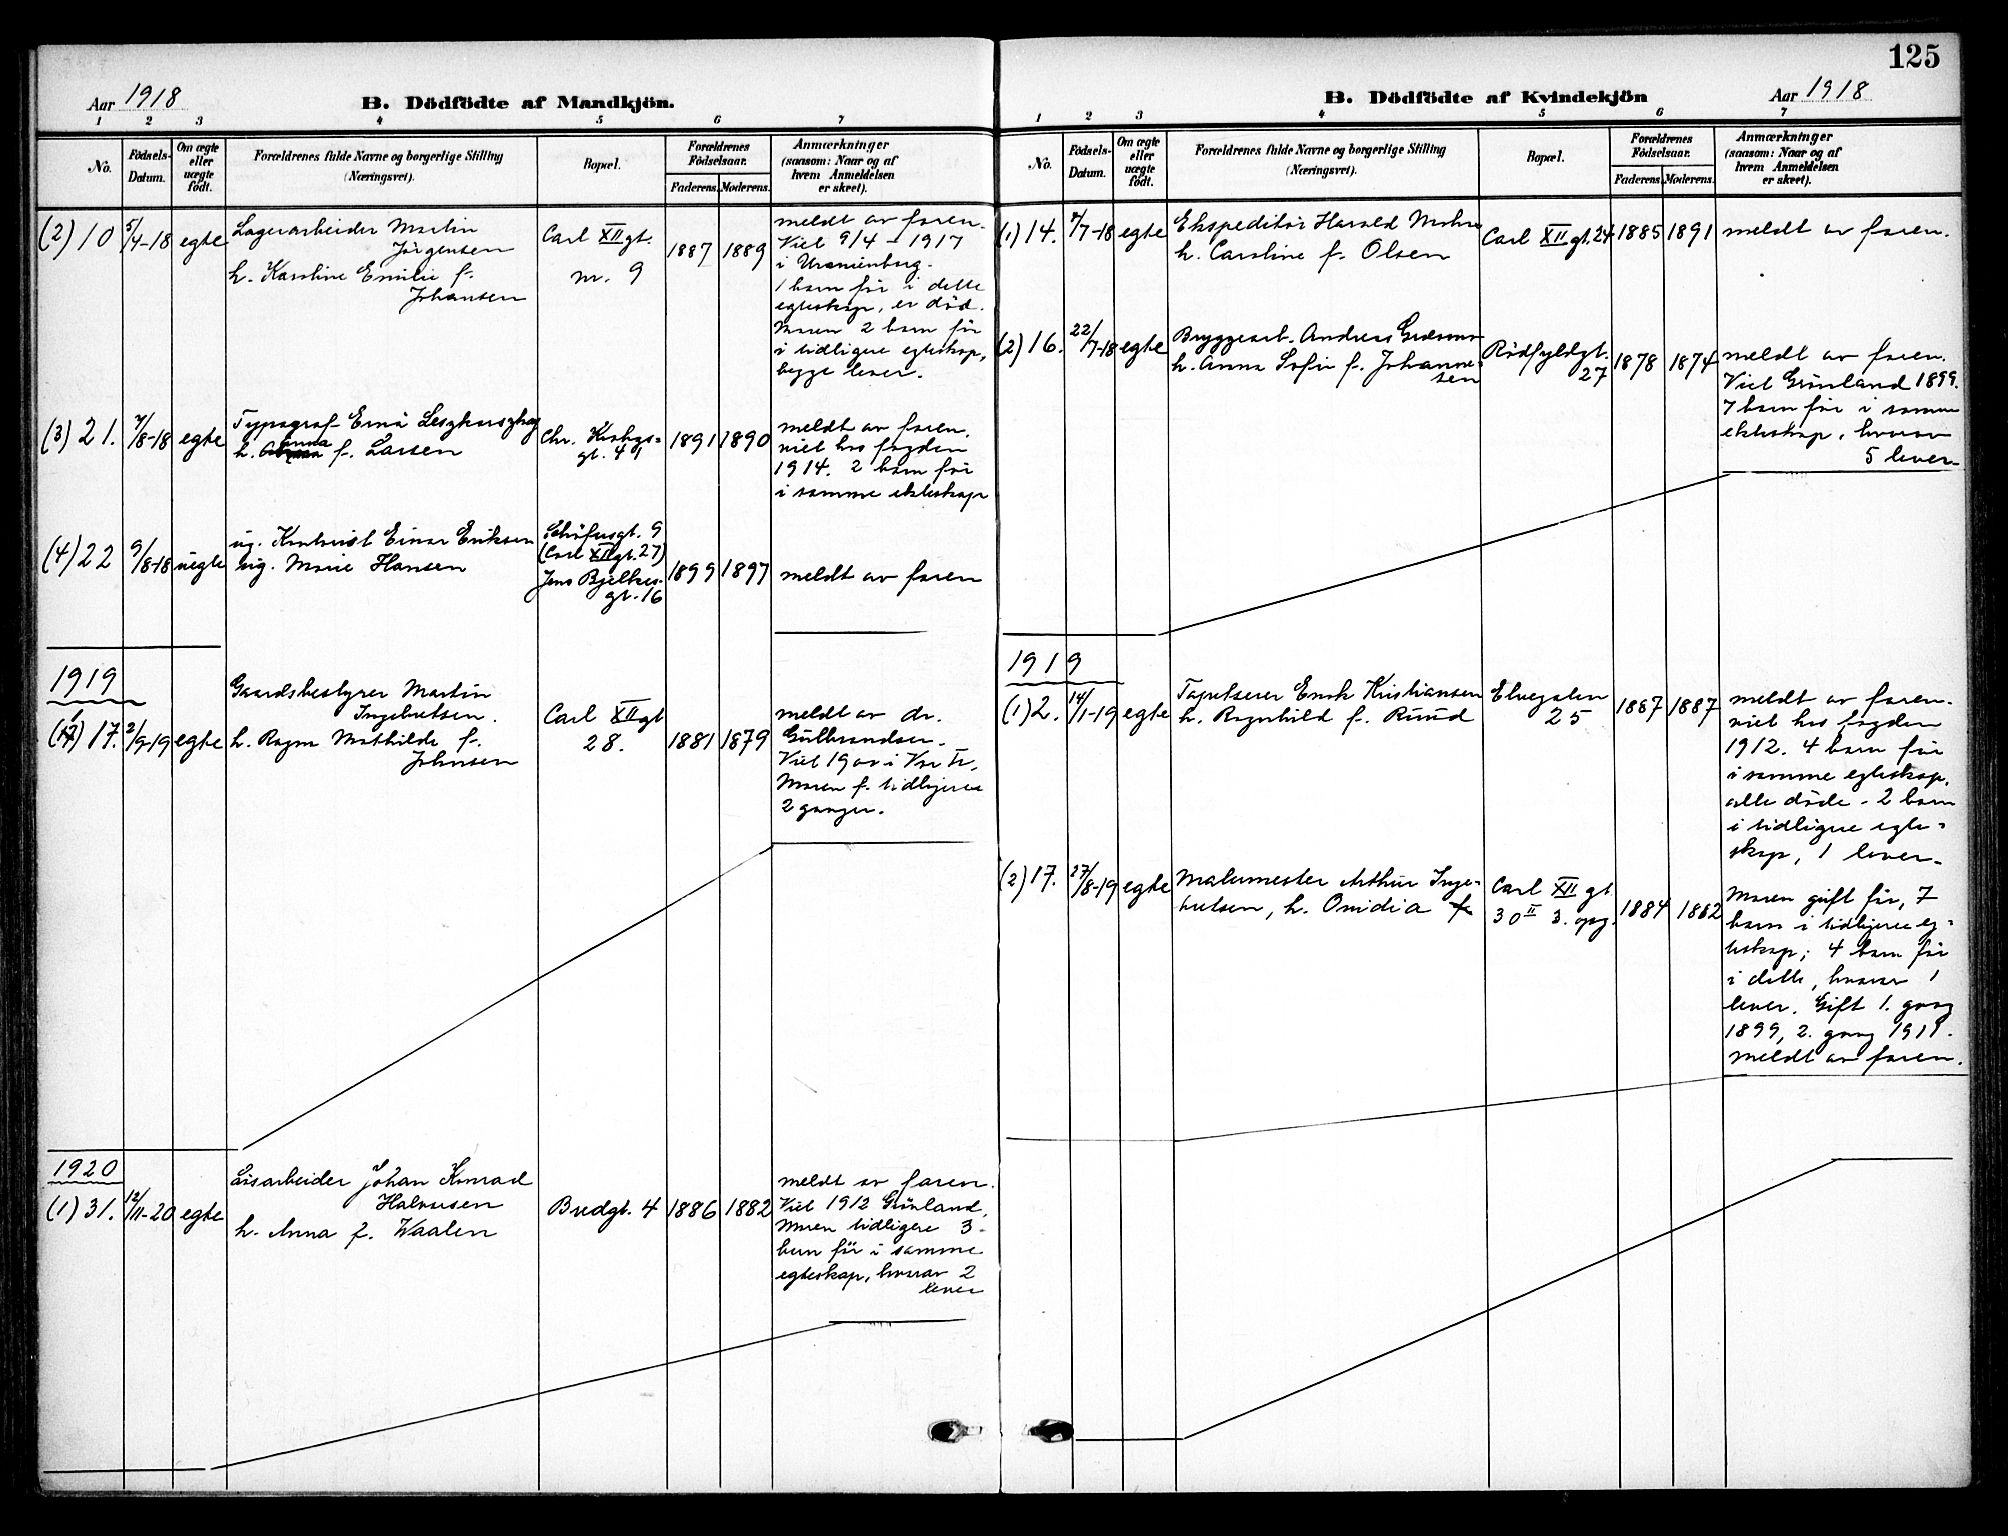 125
Aar 1918
B. Dödfödte af Mandkjön.
1 2 3 4 5 6 7
No.
Födsels-Datum.
Om ægte eller uægte født.
Forældrenes fulde Navne og borgerlige Stilling
(Næringsvei).
Bopæl.
Forældrenes Födselsaar.
Faderens. Moderens.
Anmærkninger
(saasom: Naar og af
hvem Anmeldelsen
er skeet).
(2) 10 5/4-18 egte
Lagerarbeider Martin
Jørgensen
h. Karoline Emilie f.
Johansen
Carl XII gt.
nr. 9
1887 1889
meldt av faren.
Viet 9/4 - 1917
i Uranienborg.
1 barn før i dette
egteskap, er död.
Moren 2 barn før
i tidligere egteskap,
begge lever.
(3) 21. 7/8-18 egte
Typograf Ernö
h. Anna f. Larsen
Chr. Krohgs-
gt. 41
1891 1890
meldt av faren.
viet hos fogden
1914. 2 barn før
i samme ekteskap
(4) 22 9/8-18 uegte
ug. Einar Eriksen
ug. Marie Hansen
Schöfusgt. 9
(Carl XII gt. 27)
Jens Bjelkes-
gt. 16
1899 1897
meldt av faren
1919
(1) 17. 2/9-19 egte
Gaardsbestyrer Martin
Ingebretsen.
h. Ragna Mathilde f.
Johnsen
Carl XII gt
28.
1881 1879
meldt av dr.
Gulbrandsen.
Viet 1900 i Vor Fr.
Moren f. tidligere
2 ganger.
1920
(1) 31. 12/11-20 egte
Lisarbeider Johan Konrad
Halvorsen
h. Anna f. Waalen
Bredgt. 4
1886 1882
meldt av faren.
Viet 1912 Grönland,
Moren tidligere 3
barn før i samme
egteskap, hvorav 2
lever
B. Dödfödte af Kvindekjön
Aar 1918
1 2 3 4 5 6 7
No.
Födsels-Datum.
Om ægte eller uægte født.
Forældrenes fulde Navne og borgerlige Stilling
(Næringsvei).
Bopæl.
Forældrenes Födselsaar.
Faderens. Moderens.
Anmærkninger
(saasom: Naar og af
hvem Anmeldelsen
er skeet).
(1) 14. 7/7-18 egte
Ekspeditör Harald
h. Caroline f. Olsen
Carl XII gt. 24
1885 1891
meldt av faren.
(2) 16. 22/7-18 egte
Bryggearb. Andreas
h. Anna Sofie f. Johanne-
sen
Rödfyldgt.
27
1878 1874
meldt av faren.
Viet Grönland 1899.
7 barn før i samme
ekteskap, hvorav
5 lever.
1919
(1) 2. 14/1-19 egte
Tapetserer Enok Kristiansen
h. Ragnhild f. Ruud
Elvegaten
25
1887 1887
meldt av faren.
viet hos fogden
1912. 4 barn før
i samme egteskap,
alle döde - 2 barn
i tidligere egte-
skap, 1 lever.
(2) 17. 27/8-19 egte
Malermester Arthur Inge-
bretsen, h. Ovidia f.
Carl XII gt
30 II 3. opg.
1884 1882
Moren gift før, 7
barn i tidligere eg-
teskap; 4 barn før
i dette, hvorav 1
lever. Gift 1. gang
1899, 2. gang 1911.
meldt av faren.